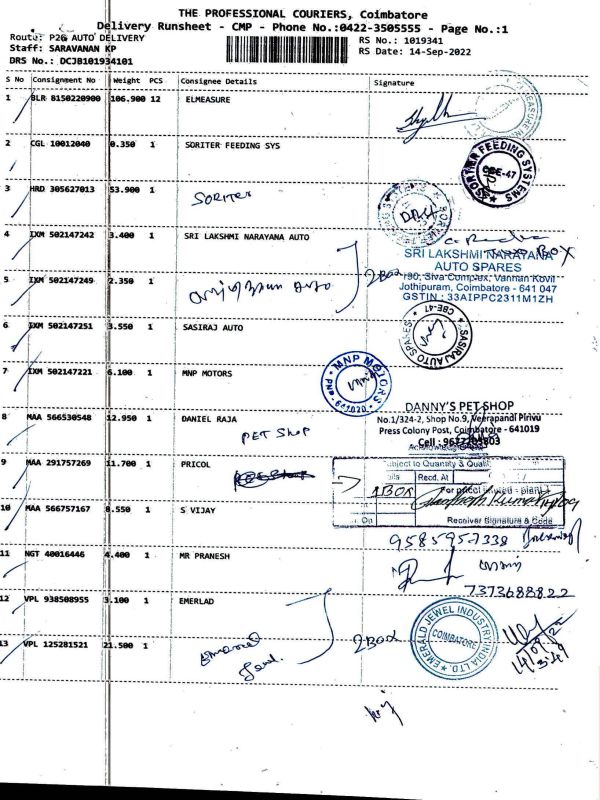 THE PROFESSIONAL COURIERS, Coimbatore
Delivery Runsheet - CMP - Phone No.:0422-3505555 - Page No.:1
Route: P26 AUTO DELIVERY
Staff: SARAVANAN KP
DRS No.: DCJB101934101
RS No.: 1019341
RS Date: 14-Sep-2022
S No Consignment No Weight PCS Consignee Details Signature
1 BLR 8150220900 106.900 12 ELMEASURE
2 CGL 10012040 0.350 1 SORITER FEEDING SYS
SORTIER FEEDING SYSTEMS
CBE-47
3 HRD 305627013 53.900 1
SORITER
4 IXM 502147242 3.400 1 SRI LAKSHMI NARAYANA AUTO
SRI LAKSHMI NARAYANA
AUTO SPARES
190, Siva Complex, Vannan Kovil
Jothipuram, Coimbatore - 641 047
GSTIN : 33AIPPC2311M1ZH
5 IXM 502147249 2.350 1
Auto
2 BOX
6 IXM 502147251 3.550 1 SASIRAJ AUTO
SASIRAJ AUTO SPARES
CBE-47
7 IXM 502147221 6.100 1 MNP MOTORS
MNP MOTORS
PNP - 641020
8 MAA 566530548 12.950 1 DANIEL RAJA
PET SHOP
DANNY'S PET SHOP
No.1/324-2, Shop No.9, Veerapandi Pirivu
Press Colony Post, Coimbatore - 641019
9 MAA 291757269 11.700 1 PRICOL
Subject to Quantity &
Recd. At
1 BOX
Receiver Signature & Code
10 MAA 566757167 8.550 1 S VIJAY
9585957338
11 NGT 40016446 4.400 1 MR PRANESH
7373688822
12 VPL 938508955 3.100 1 EMERLAD
EMERALD JEWEL INDUSTRY INDIA LTD.
COIMBATORE
13 VPL 125281521 21.500 1
2 BOX